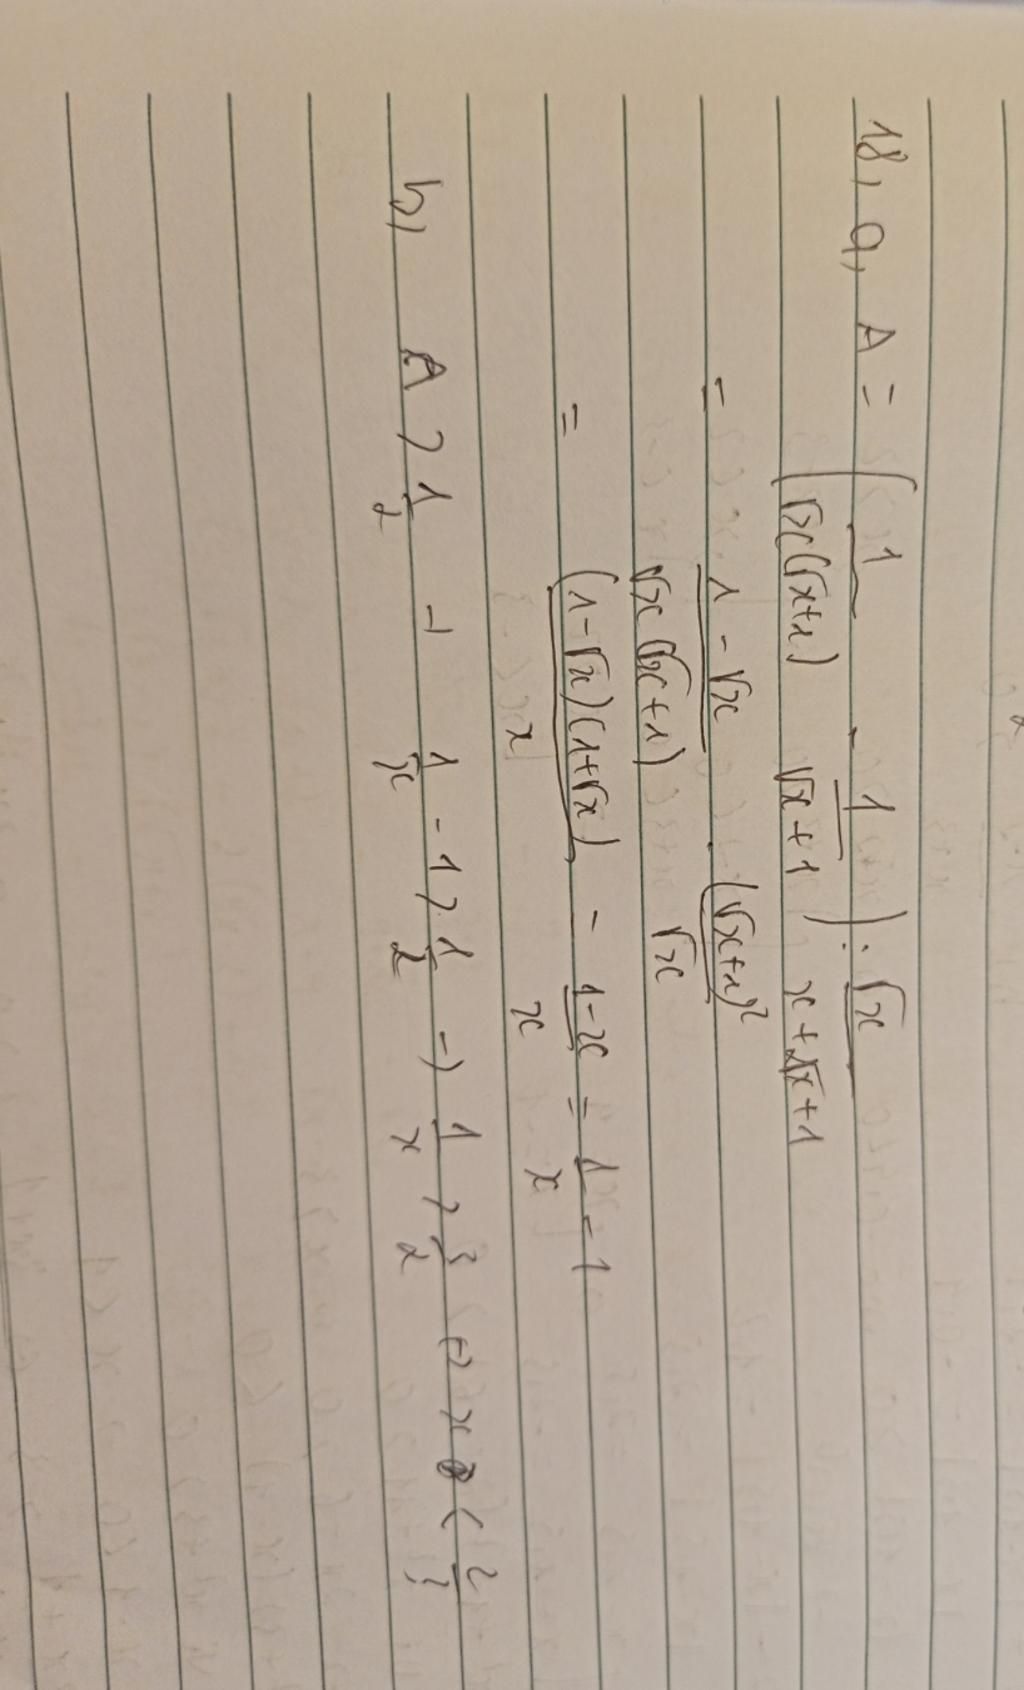 18, a, A = (1/(√x(√x+1)) - 1/(√x+1)) : √x/(x+2√x+1)
= (1-√x)/(√x(√x+1)) . (√x+1)²/√x
= (1-√x)(1+√x)/x = (1-x)/x = 1/x - 1
b, A > 1/2 → 1/x - 1 > 1/2 → 1/x > 3/2 ↔ x < 2/3